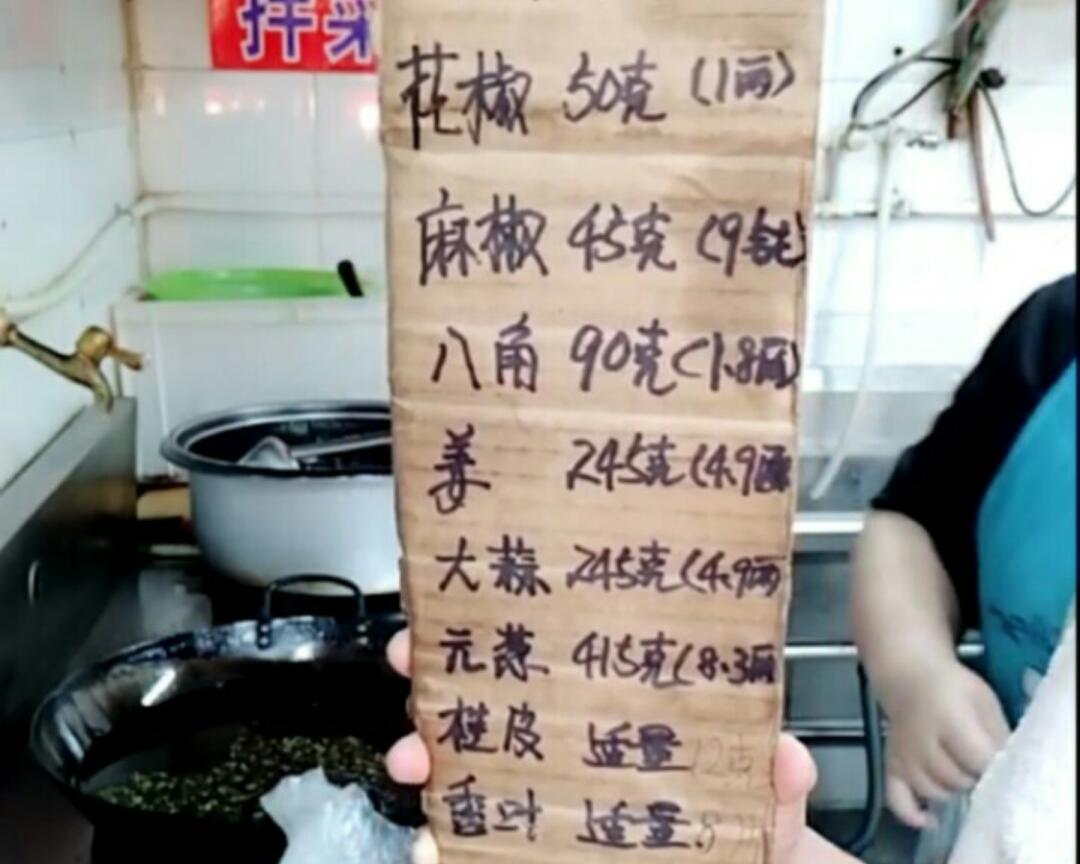 拌菜
花椒 50克 (1两)
麻椒 45克 (9钱)
八角 90克 (1.8两)
姜 245克 (4.9两
大蒜 245克 (4.9两
元葱 415克 (8.3两
桂皮 适量 12克
香叶 适量